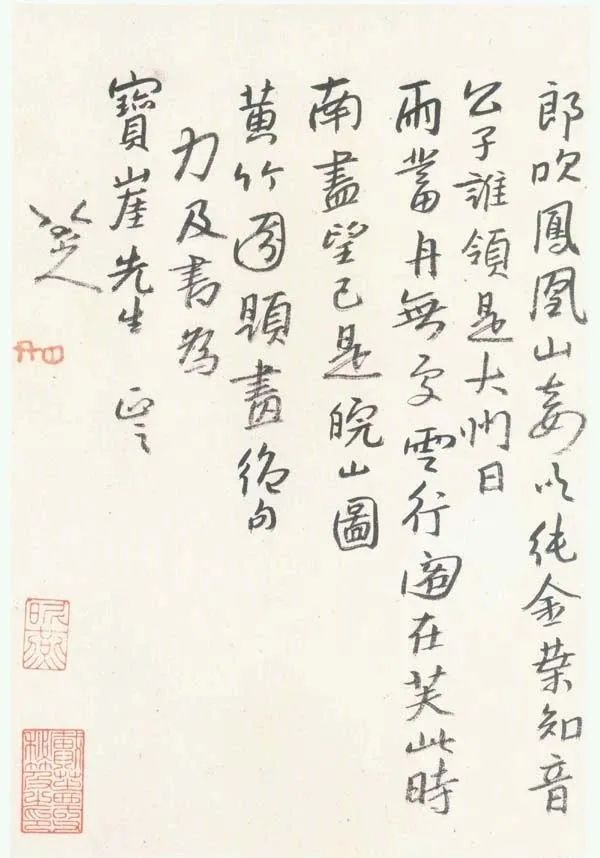 郎吹鳳凰山妾以純金葉知音
公子誰領是大州日
雨蓄舟無 雲行 在芙此時
南盡望已是皖山圖
黃竹園題畫絕句
力及書為
寶崖先生 正之
八大山人